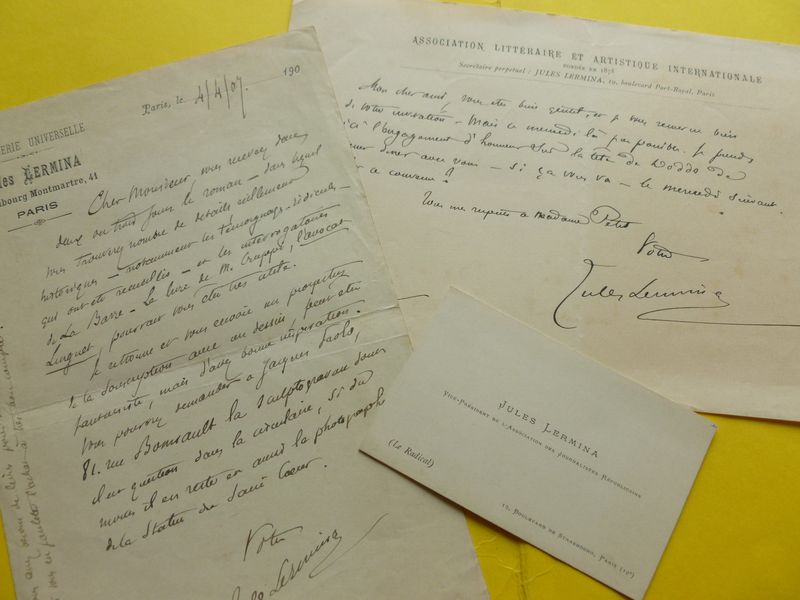 ERIE UNIVERSELLE
les LERMINA
bourg Montmartre, 41
PARIS
Paris, le 4/4/07. 190
Cher Monsieur, vous recevrez dans
deux ou trois jours le roman – dans lequel
vous trouverez nombre de détails réellement
historiques – notamment les témoignages ridicules –
qui ont été recueillis – et les interrogatoires
de La Barre – Le livre de M. Cruppi, l'avocat
Linguet, pourrait vous être très utile.
Je retrouve et vous envoie un prospectus
de la souscription avec un dessin, peut-être
fantaisiste, mais d'assez bonne inspiration.
Vous pourrez demander à Jacques Paolo,
81. rue Boursault la sculptogravure dont
il est question dans la circulaire, si du
moins il en reste et aussi la photographie
de la statue du Sacré Coeur.
Votre
Jules Lermina
ASSOCIATION LITTÉRAIRE ET ARTISTIQUE INTERNATIONALE
FONDÉE EN 1878
Secrétaire perpétuel : JULES LERMINA, 10, boulevard Port-Royal, Paris
Mon cher ami, vous êtes bien gentil, et je vous remercie bien
de votre invitation – Mais ce mercredi là pas possible. Je prends
l'engagement d'honneur sur la tête de
dîner avec vous – si ça vous va – le mercredi suivant.
convenu ?
Tous mes respects à Madame Petit
Votre
Jules Lermina
JULES LERMINA
VICE-PRÉSIDENT DE L'ASSOCIATION DES JOURNALISTES RÉPUBLICAINS
(Le Radical)
10, BOULEVARD DE STRASBOURG, PARIS (10e)